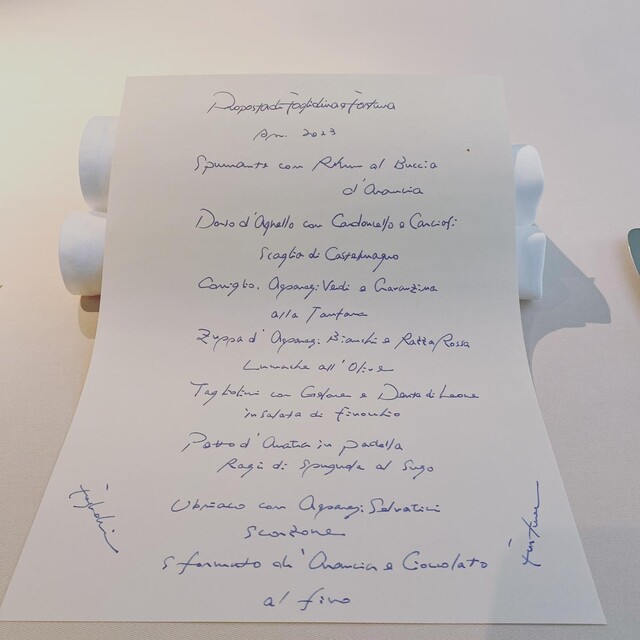 Proposta di
Apr. 2023
Spumante con Rhum al Buccia
d'Arancia
Dorso d'Agnello con Cardoncello e Carciofi
Scaglia di Castelmagno
Coniglio, Asparagi Verdi e
alla Tartara
Zuppa d'Asparagi Bianchi e Ratta Rossa
Lumache all'Olive
Tagliolini con e Dente di Leone
insalata di finocchio
Petto d'Anatra in padella
Ragù di Spugnola al Sugo
Ubriaco con Asparagi Selvatici
Scorzone
Sformato di Arancia e Cioccolato
al fino